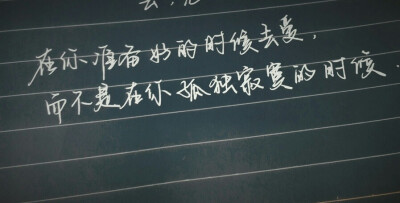 在你准备好的时候去爱，
而不是在你孤独寂寞的时候．